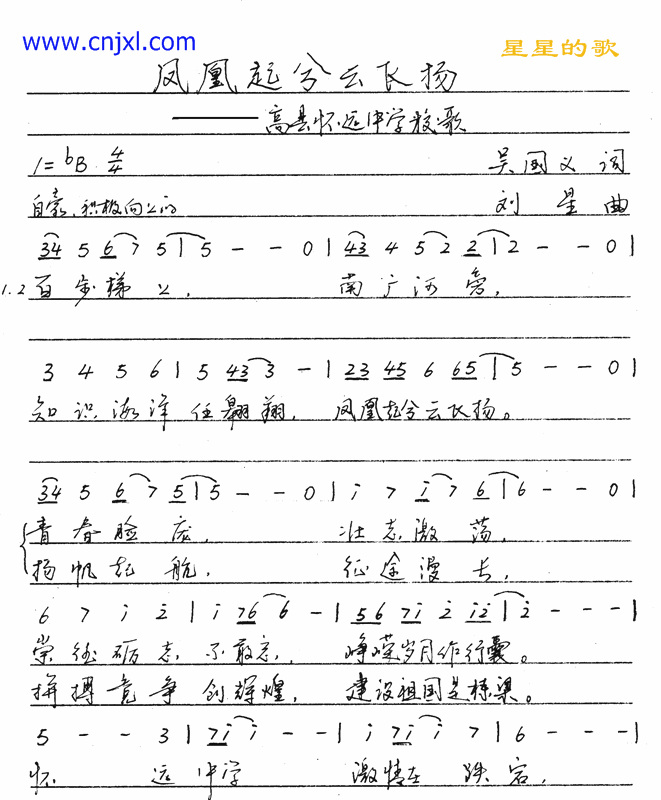 www.cnjxl.com 星星的歌
凤凰起兮云飞扬
——高县怀远中学校歌
1=bB 4/4 吴国义 词
自豪、积极向上的 刘星 曲
34 5 6 7 5 | 5 - - 0 | 43 4 5 2 2 | 2 - - 0 |
1.2 百步梯上, 南广河旁,
3 4 5 6 | 5 43 3 - | 23 45 6 65 | 5 - - 0 |
知识海洋任翱翔, 凤凰起兮云飞扬。
34 5 6 7 5 | 5 - - 0 | i 7 i 7 6 | 6 - - 0 |
青春脸庞, 壮志激荡,
扬帆起航, 征途漫长,
6 7 i 2 | i 76 6 - | 56 7i 2 i2 | 2 - - - |
崇德砺志不敢忘, 峥嵘岁月作行囊。
拼搏竞争创辉煌, 建设祖国是栋梁。
5 - - 3 | 7i i - - | i 7i i 7 | 6 - - - |
怀远中学 激情在跌宕,